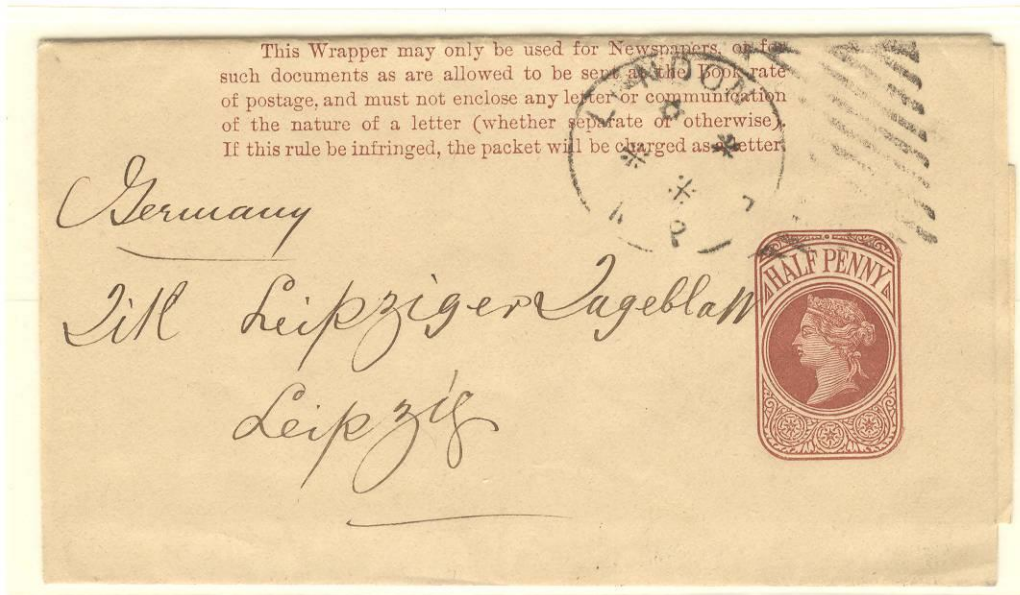 This Wrapper may only be used for Newspapers, or for
such documents as are allowed to be sent at the Book-rate
of postage, and must not enclose any letter or communication
of the nature of a letter (whether separate or otherwise).
If this rule be infringed, the packet will be charged as a letter.
LONDON
Germany
HALF PENNY
Leipziger Tageblatt
Leipzig